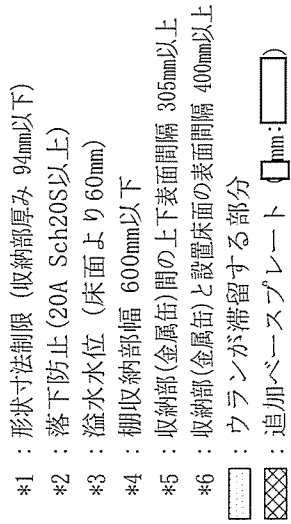 *1 : 形状寸法制限 (収納部厚み 94mm以下)
*2 : 落下防止 (20A Sch20S以上)
*3 : 溢水水位 (床面より60mm)
*4 : 棚収納部幅 600mm以下
*5 : 収納部(金属缶)間の上下表面間隔 305mm以上
*6 : 収納部(金属缶)と設置床面の表面間隔 400mm以上
: ウランが滞留する部分
: 追加ベースプレート ( mm: )